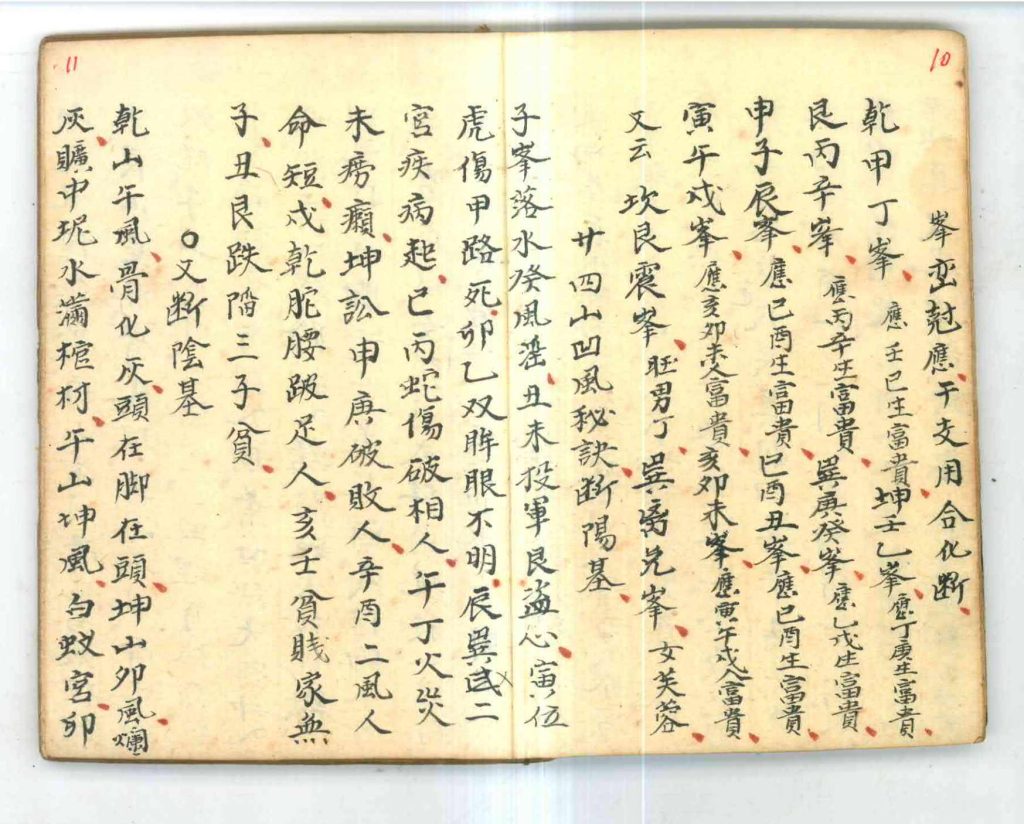 10
峯峦尅應干支用合化断
乾甲丁峯應壬巳生富貴坤壬乙峯應丁庚生富貴
艮丙辛峯應丙辛生富貴巽庚癸峯應乙戊生富貴
申子辰峯應巳酉生富貴巳酉丑峯應巳酉生富貴
寅午戌峯應亥卯未人富貴亥卯未峯應寅午戌人富貴
又云坎艮震峯旺男丁巽离兌峯女芙蓉
廿四山凹風秘訣断陽基
子峯落水癸風滛丑未投軍艮盗心寅位
虎傷甲路死卯乙双眸眼不明辰巽二
宮疾病起巳丙蛇傷破相人午丁火災
未痨癲坤訟申庚破敗人辛酉二風人
命短戌乾駝腰跛足人亥壬貧賤家無
子丑艮跌三子貧
又断陰基
11
乾山午風骨化灰頭在脚在頭坤山卯風爛
灰壙中坭水滿棺材午山坤風白蚁宮卯